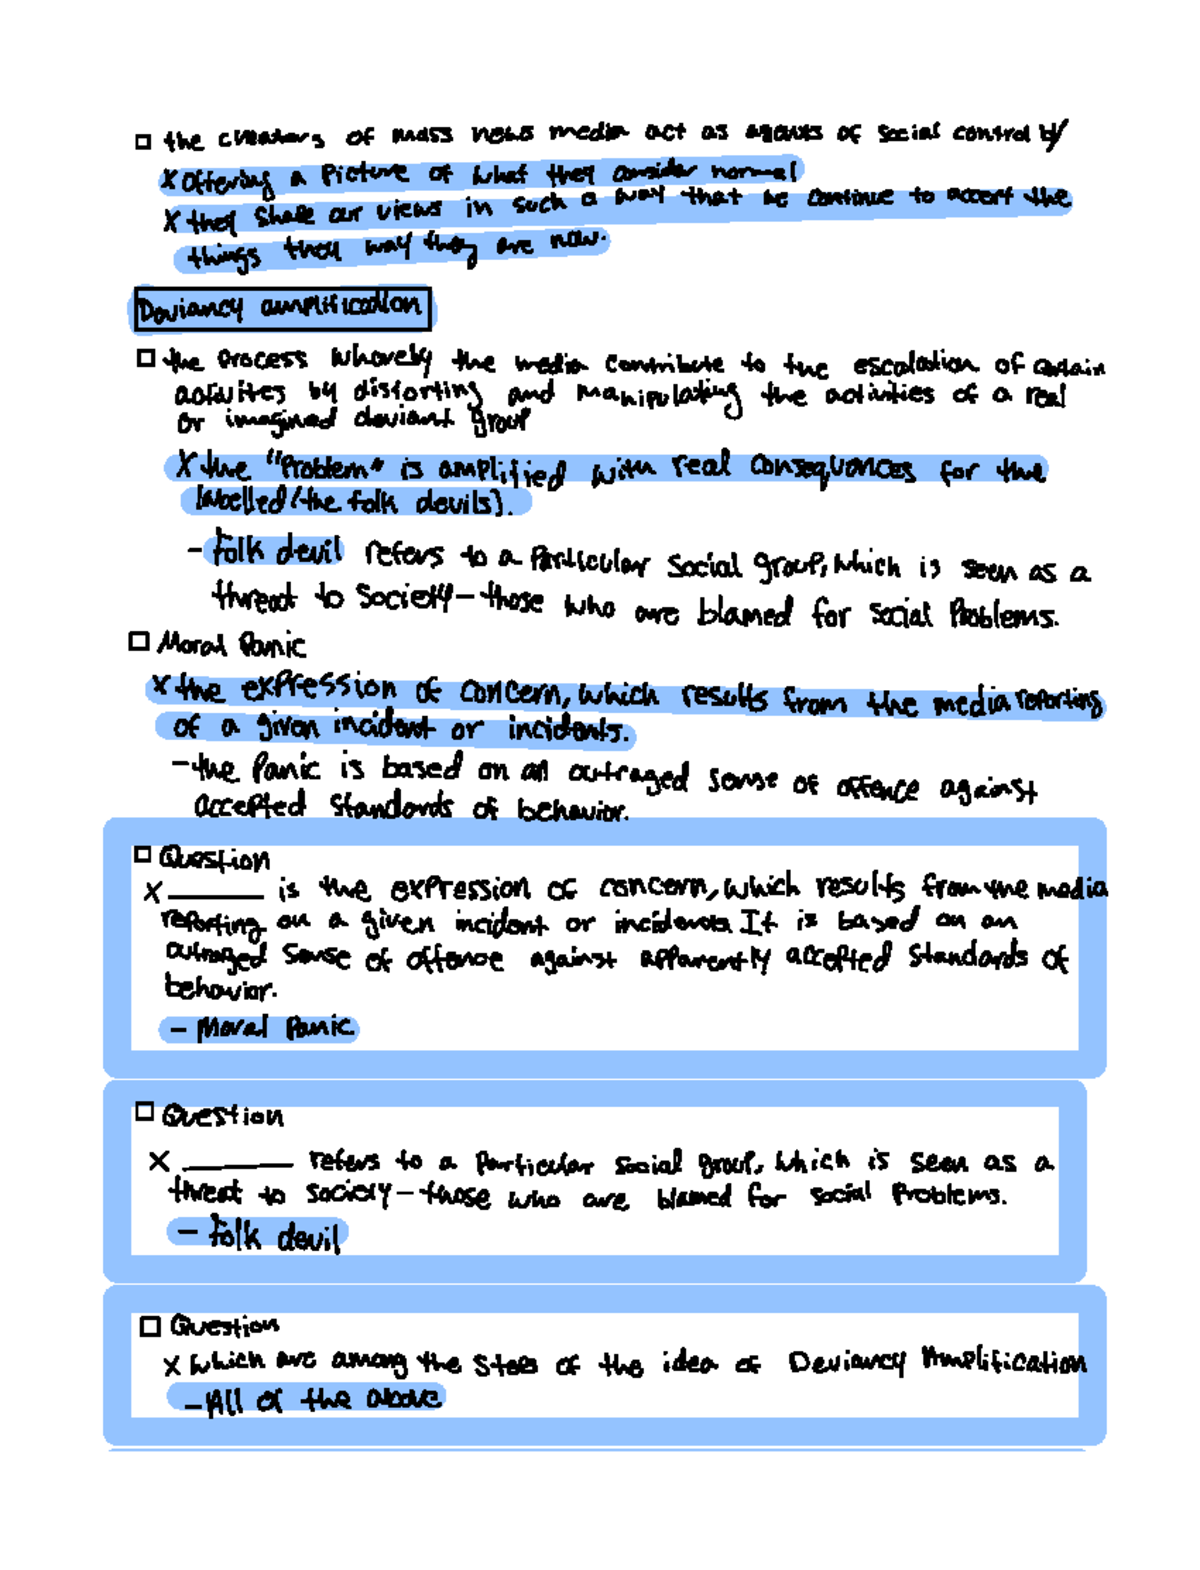 □ the creators of mass news media act as agents of social control by
x offering a picture of what they consider normal
x they shape our views in such a way that we continue to accept the
things they way they are now.
Deviancy amplification
□ the process whereby the media contribute to the escalation of certain
activities by distorting and manipulating the activities of a real
or imagined deviant group
x the "problem" is amplified with real consequences for the
labelled (the folk devils).
- folk devil refers to a particular social group, which is seen as a
threat to society - those who are blamed for social problems.
□ Moral Panic
x the expression of concern, which results from the media reporting
of a given incident or incidents.
- the panic is based on an outraged sense of offence against
accepted standards of behavior.
□ Question
x ______ is the expression of concern, which results from the media
reporting on a given incident or incidents. It is based on an
outraged sense of offence against apparently accepted standards of
behavior.
- Moral Panic
□ Question
x ______ refers to a particular social group, which is seen as a
threat to society - those who are blamed for social problems.
- folk devil
□ Question
x which are among the steps of the idea of Deviancy Amplification
- All of the above